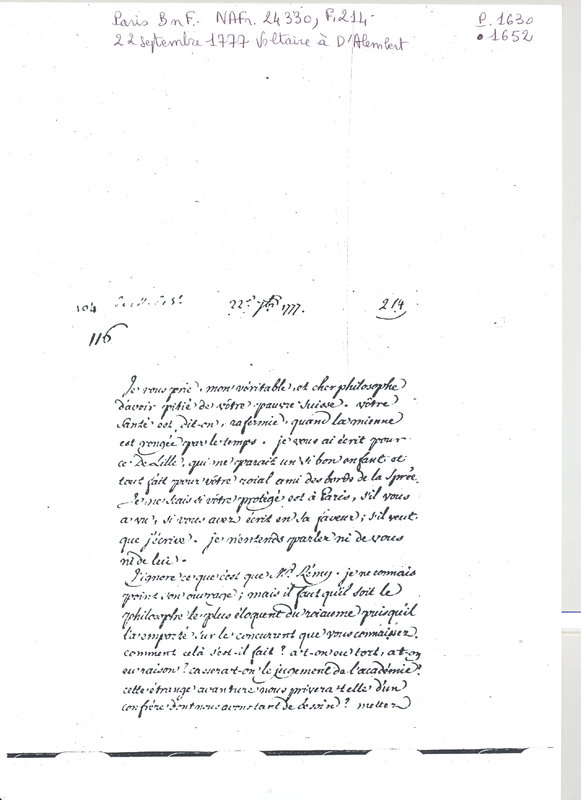 Paris BnF. NAFr. 24330, P. 214.
P. 1630
22 septembre 1777 Voltaire à D'Alembert
• 1652
104
22e 7bre 1777.
214
116
Je vous prie, mon véritable, et cher philosophe
d'avoir pitié de vôtre pauvre Suisse. vôtre
Santé est, dit-on, rafermie, quand la mienne
est rongée par le temps. je vous ai écrit pour
ce De Lille, qui me parait un si bon enfant et
tout fait pour vôtre roial ami des bords de la Sprée.
Je ne sais si vôtre protégé est à Paris, s'il vous
a vu, si vous avez écrit en sa faveur; s'il veut
que j'écrive. je n'entends parler ni de vous
ni de lui.
J'ignore ce que c'est que Mr. Rémy. je ne connais
point son ouvrage; mais il faut qu'il soit le
philosophe le plus éloquent du roiaume puisqu'il
l'a emporté sur le concurrent que vous connaissez.
comment celà s'est-il fait? a-t-on eu tort, a-t-on
eu raison? cassera-t-on le jugement de l'académie?
cette étrange avanture nous privera-t-elle d'un
confrère dont nous avons tant de besoin? mettez